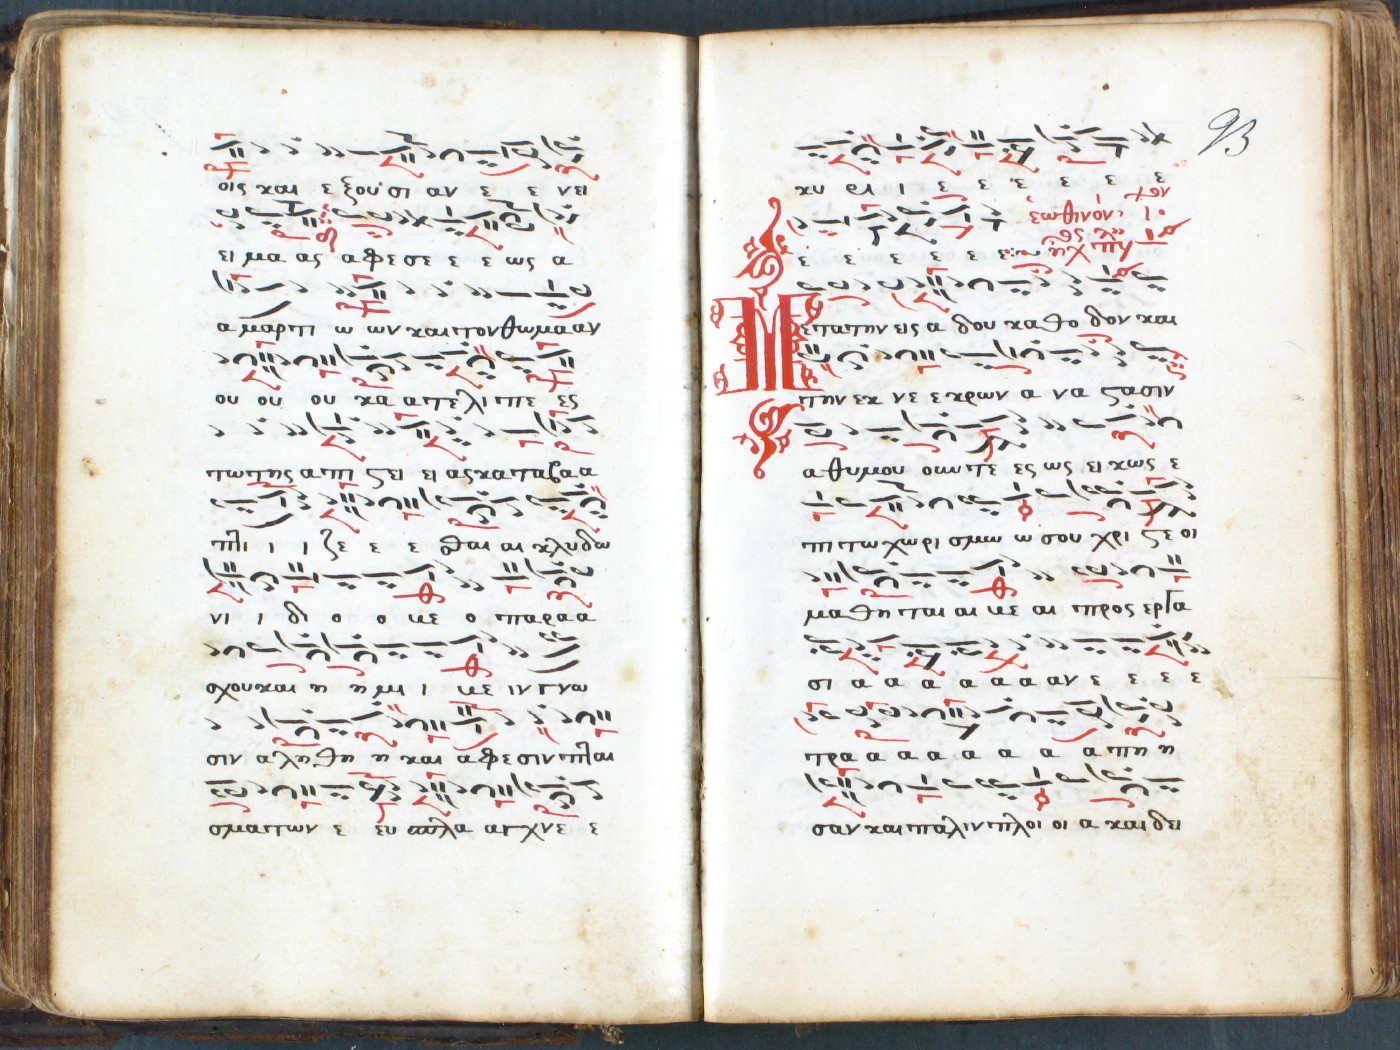 οις και ε ξου σι αν ε ε νει
ει μα ας α φε σε ε ε ως α
α μαρτι ω ων και τον θωμα αν
ου ου ου κα α τε λι πε ες
τω της α πι ςει ει ας κα ταβα α
πτι ι ι ζε ε ε σθαι αι κλυδω
νι ι δι ο ο με ο παρα α
σχου και η η μι ι με ιν γνω
σιν α λη θη η και α φε σιν πται
σματων ε ευ σπλα α γχνε ε
93
κυ ρι ι ε ε ε ε ε ε
εωθινόν ι
ε ε ε ε ε ε
Μετα την εις α δου κα θο δον και
την εκ νε ε κρων α να ςασιν
α θυμου ουντε ες ως ει κως ε
πι τω χωρι σμω ω σου χρι ςε οι
μα θη ται αι με αι προς εργα
σι α α α α α α αν ε ε ε ε
τρα α α α α α α α πη η
σαν και παλιν πλοι οι α και δει